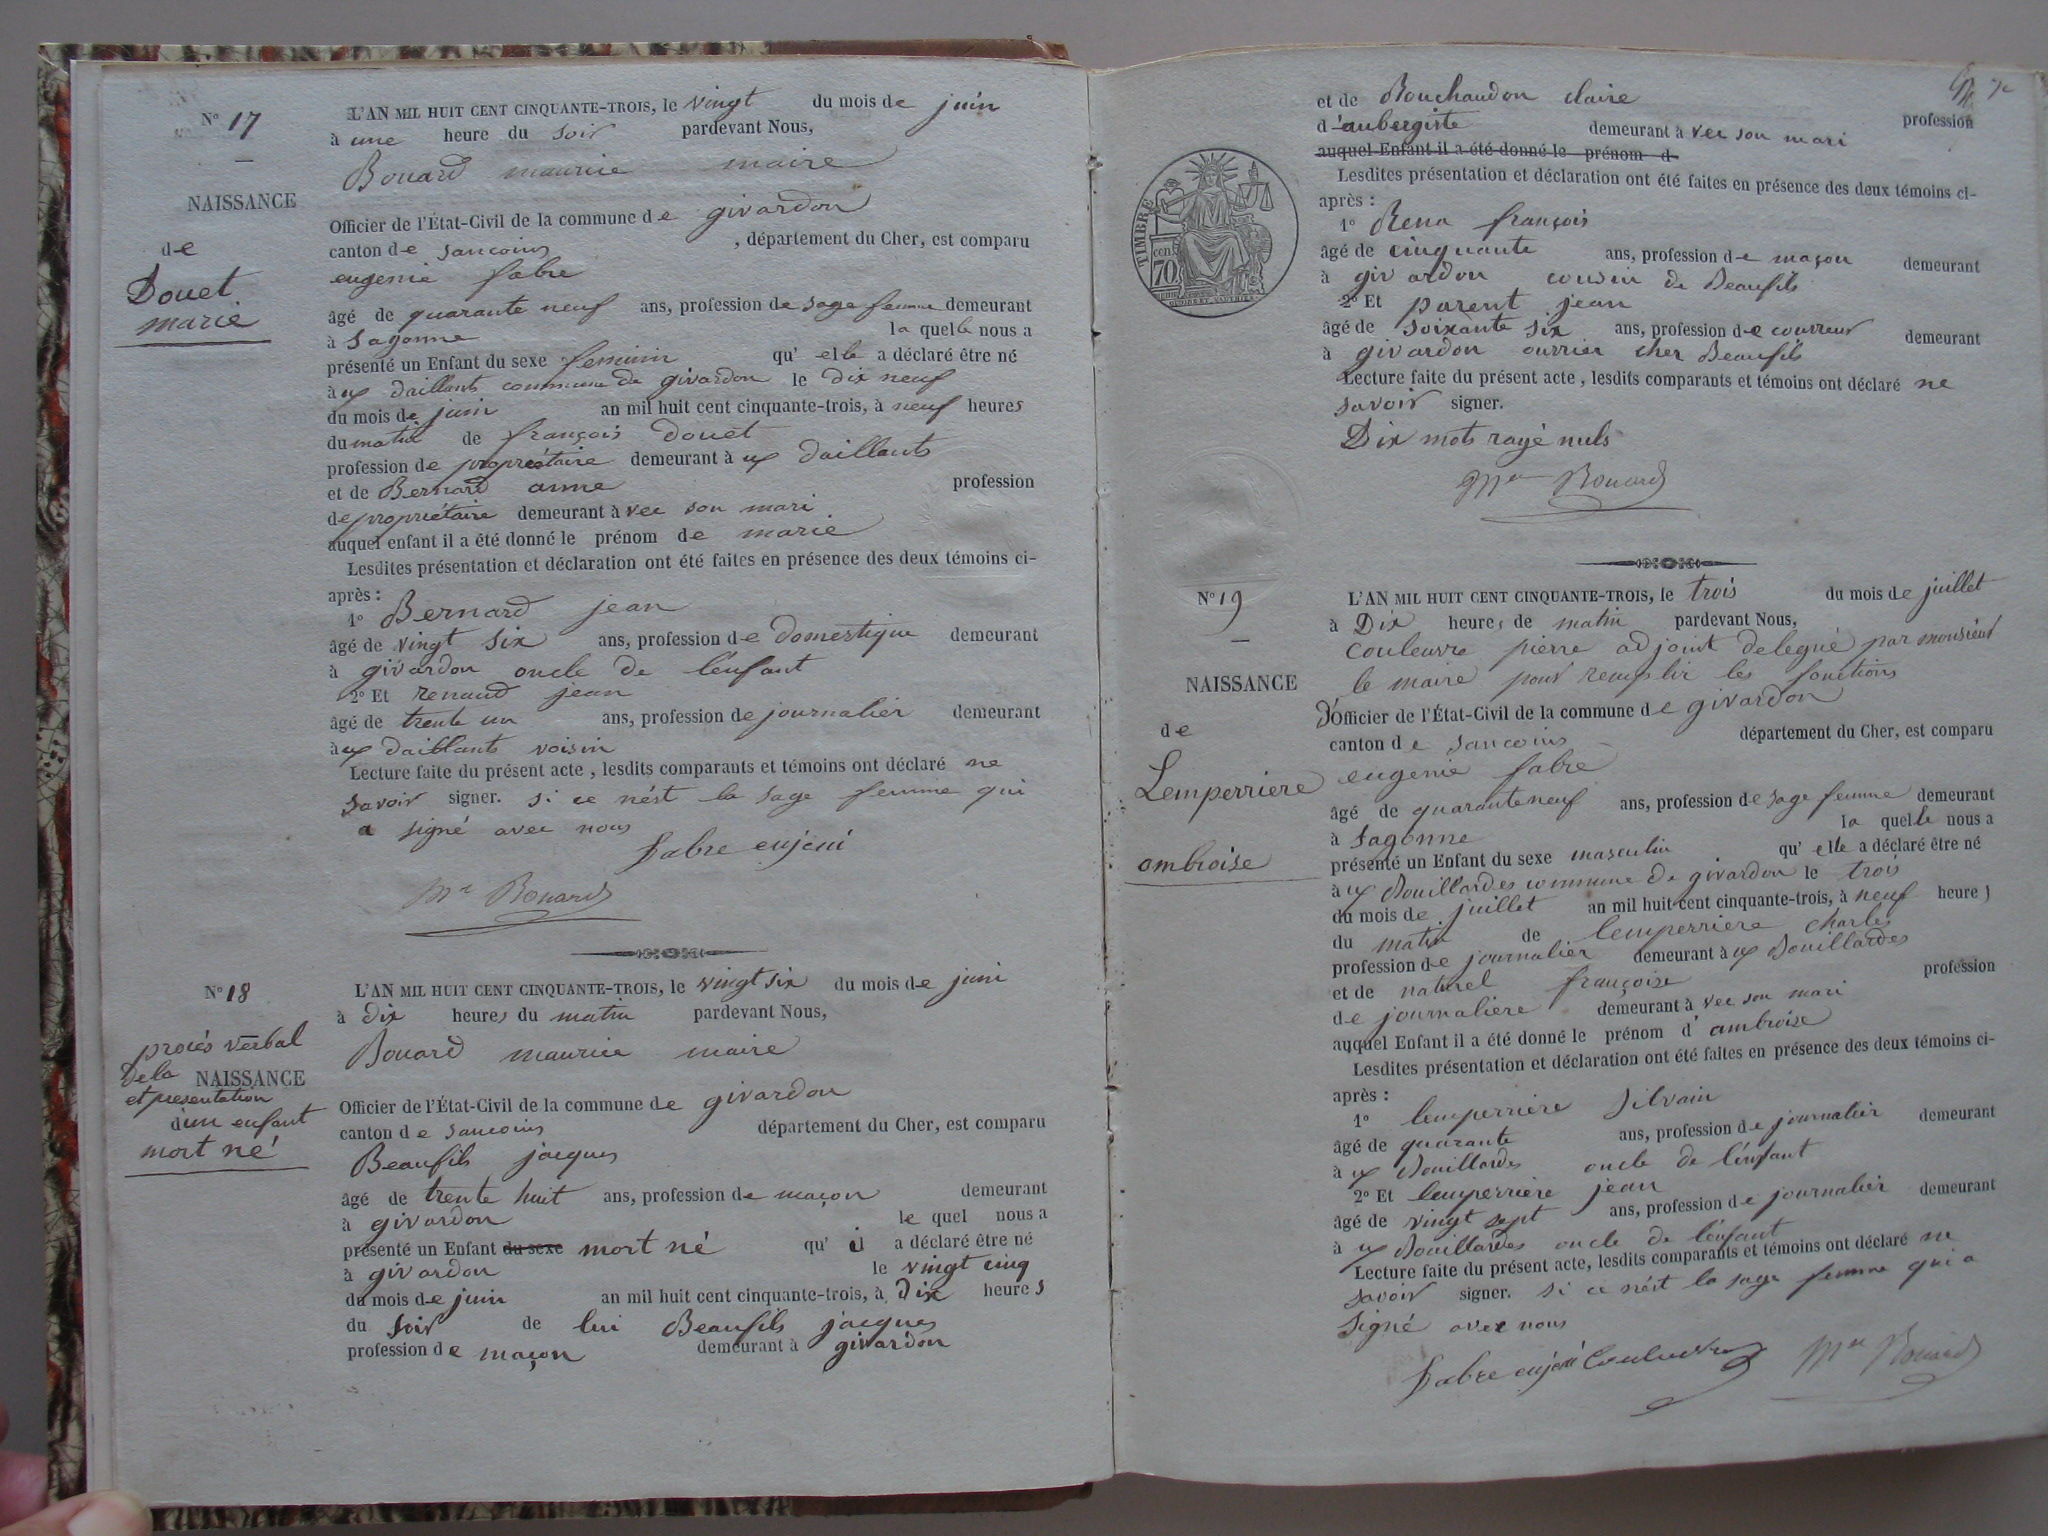 N° 17
NAISSANCE
de
Douet
marie
L'AN MIL HUIT CENT CINQUANTE-TROIS, le vingt du mois de juin
à une heure du soir pardevant Nous,
Bouard maurice maire
Officier de l'État-Civil de la commune de givardon
canton de sancoins , département du Cher, est comparu
eugenie fabre
âgé de quarante neuf ans, profession de sage femme demeurant
à Sagonne la quelle nous a
présenté un Enfant du sexe feminin qu' elle a déclaré être né
à ux daillants commune de givardon le dix neuf
du mois de juin an mil huit cent cinquante-trois, à neuf heures
du matin de françois douet
profession de propriétaire demeurant à ux daillants
et de Bernard anne profession
de propriétaire demeurant à vec son mari
auquel enfant il a été donné le prénom de marie
Lesdites présentation et déclaration ont été faites en présence des deux témoins ci-
après :
1° Bernard jean
âgé de vingt six ans, profession de domestique demeurant
à givardon oncle de l'enfant
2° Et renaud jean
âgé de trente un ans, profession de journalier demeurant
à ux daillants voisin
Lecture faite du présent acte, lesdits comparants et témoins ont déclaré ne
savoir signer. si ce n'est la sage femme qui
a signé avec nous
fabre eujeni
Mce Bouard
N° 18
procés verbal
de la NAISSANCE
et presentation
d'un enfant
mort né
L'AN MIL HUIT CENT CINQUANTE-TROIS, le vingt six du mois de juin
à dix heures du matin pardevant Nous,
Bouard maurice maire
Officier de l'État-Civil de la commune de givardon
canton de sancoins département du Cher, est comparu
Beaufils jacques
âgé de trente huit ans, profession de maçon demeurant
à givardon le quel nous a
présenté un Enfant du sexe mort né qu' il a déclaré être né
à givardon le vingt cinq
du mois de juin an mil huit cent cinquante-trois, à Dix heures
du soir de lui Beaufils jacques
profession de maçon demeurant à givardon
et de Bouchaudon claire profession
d'aubergiste demeurant à vec son mari
auquel Enfant il a été donné le prénom d
Lesdites présentation et déclaration ont été faites en présence des deux témoins ci-
après :
1° Rena françois
âgé de cinquante ans, profession de maçon demeurant
à givardon cousin de Beaufils
2° Et parent jean
âgé de soixante six ans, profession de couvreur demeurant
à givardon ouvrier cher Beaufils
Lecture faite du présent acte, lesdits comparants et témoins ont déclaré ne
savoir signer.
Dix mots rayé nuls
Mce Bouard
TIMBRE
70 cen
N° 19
NAISSANCE
de
Lemperriere
ambroise
L'AN MIL HUIT CENT CINQUANTE-TROIS, le trois du mois de juillet
à Dix heures de matin pardevant Nous,
couleuvre pierre adjoint delegué par monsieur
le maire pour remplir les fonctions
d'Officier de l'État-Civil de la commune de givardon
canton de sancoins département du Cher, est comparu
eugenie fabre
âgé de quaranteneuf ans, profession de sage femme demeurant
à Sagonne la quelle nous a
présenté un Enfant du sexe masculin qu' elle a déclaré être né
à ux douillardes commune de givardon le trois
du mois de juillet an mil huit cent cinquante-trois, à neuf heures
du matin de lemperriere charles
profession de journalier demeurant à ux douillardes
et de naturel françoise profession
de journaliere demeurant à vec son mari
auquel Enfant il a été donné le prénom d' ambroise
Lesdites présentation et déclaration ont été faites en présence des deux témoins ci-
après :
1° lemperriere silvain
âgé de quarante ans, profession de journalier demeurant
à ux douillardes oncle de l'enfant
2° Et lemperriere jean
âgé de vingt sept ans, profession de journalier demeurant
à ux douillardes oncle de l'enfant
Lecture faite du présent acte, lesdits comparants et témoins ont déclaré ne
savoir signer. si ce n'est la sage femme qui a
signé avec nous
fabre eujeni Couleuvre Mce Bouard